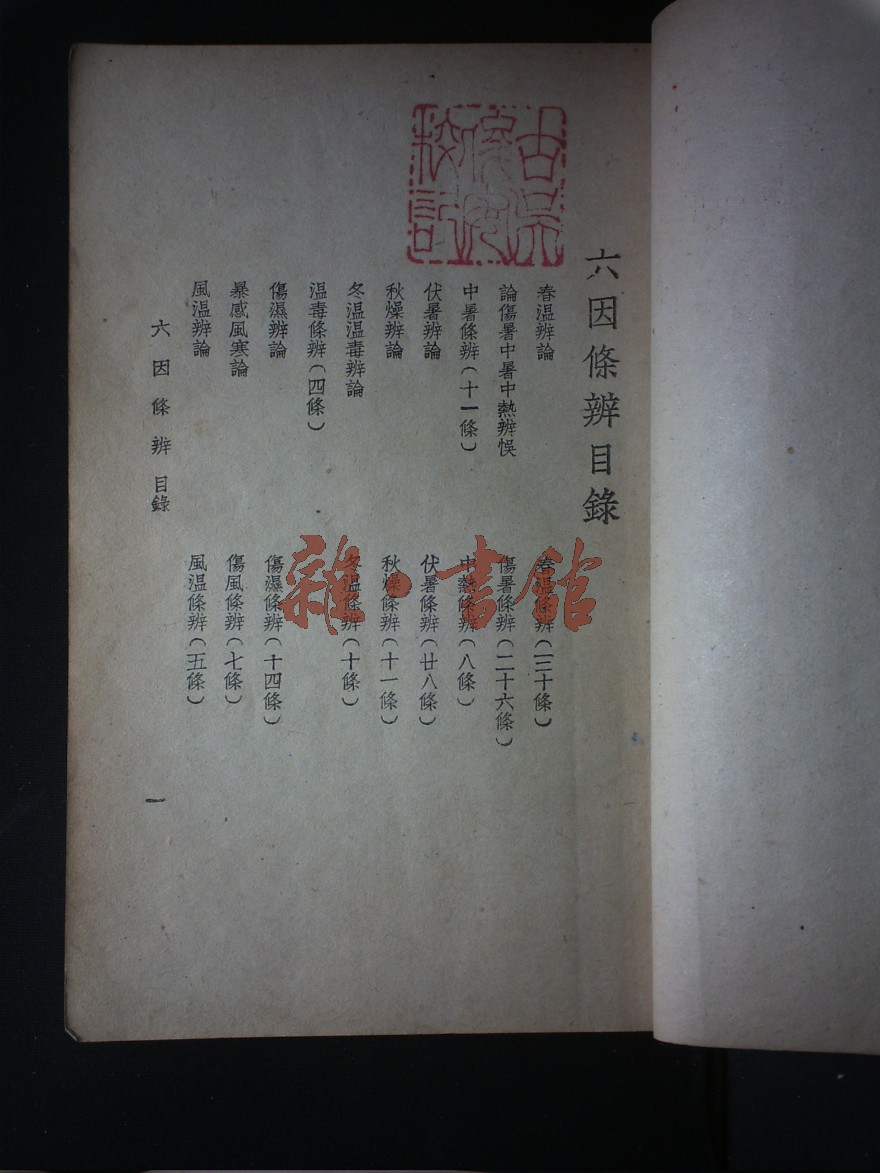 古吳
六因條辨目錄
春温辨論
春温條辨(三十條)
論傷暑中暑中熱辨悞
傷暑條辨(二十六條)
中暑條辨(十一條)
中熱條辨(八條)
伏暑辨論
伏暑條辨(廿八條)
秋燥辨論
秋燥條辨(十一條)
冬温温毒辨論
冬温條辨(十條)
温毒條辨(四條)
傷濕辨論
傷濕條辨(十四條)
暴感風寒論
傷風條辨(七條)
風温辨論
風温條辨(五條)
六因條辨 目錄
一
雜·書館